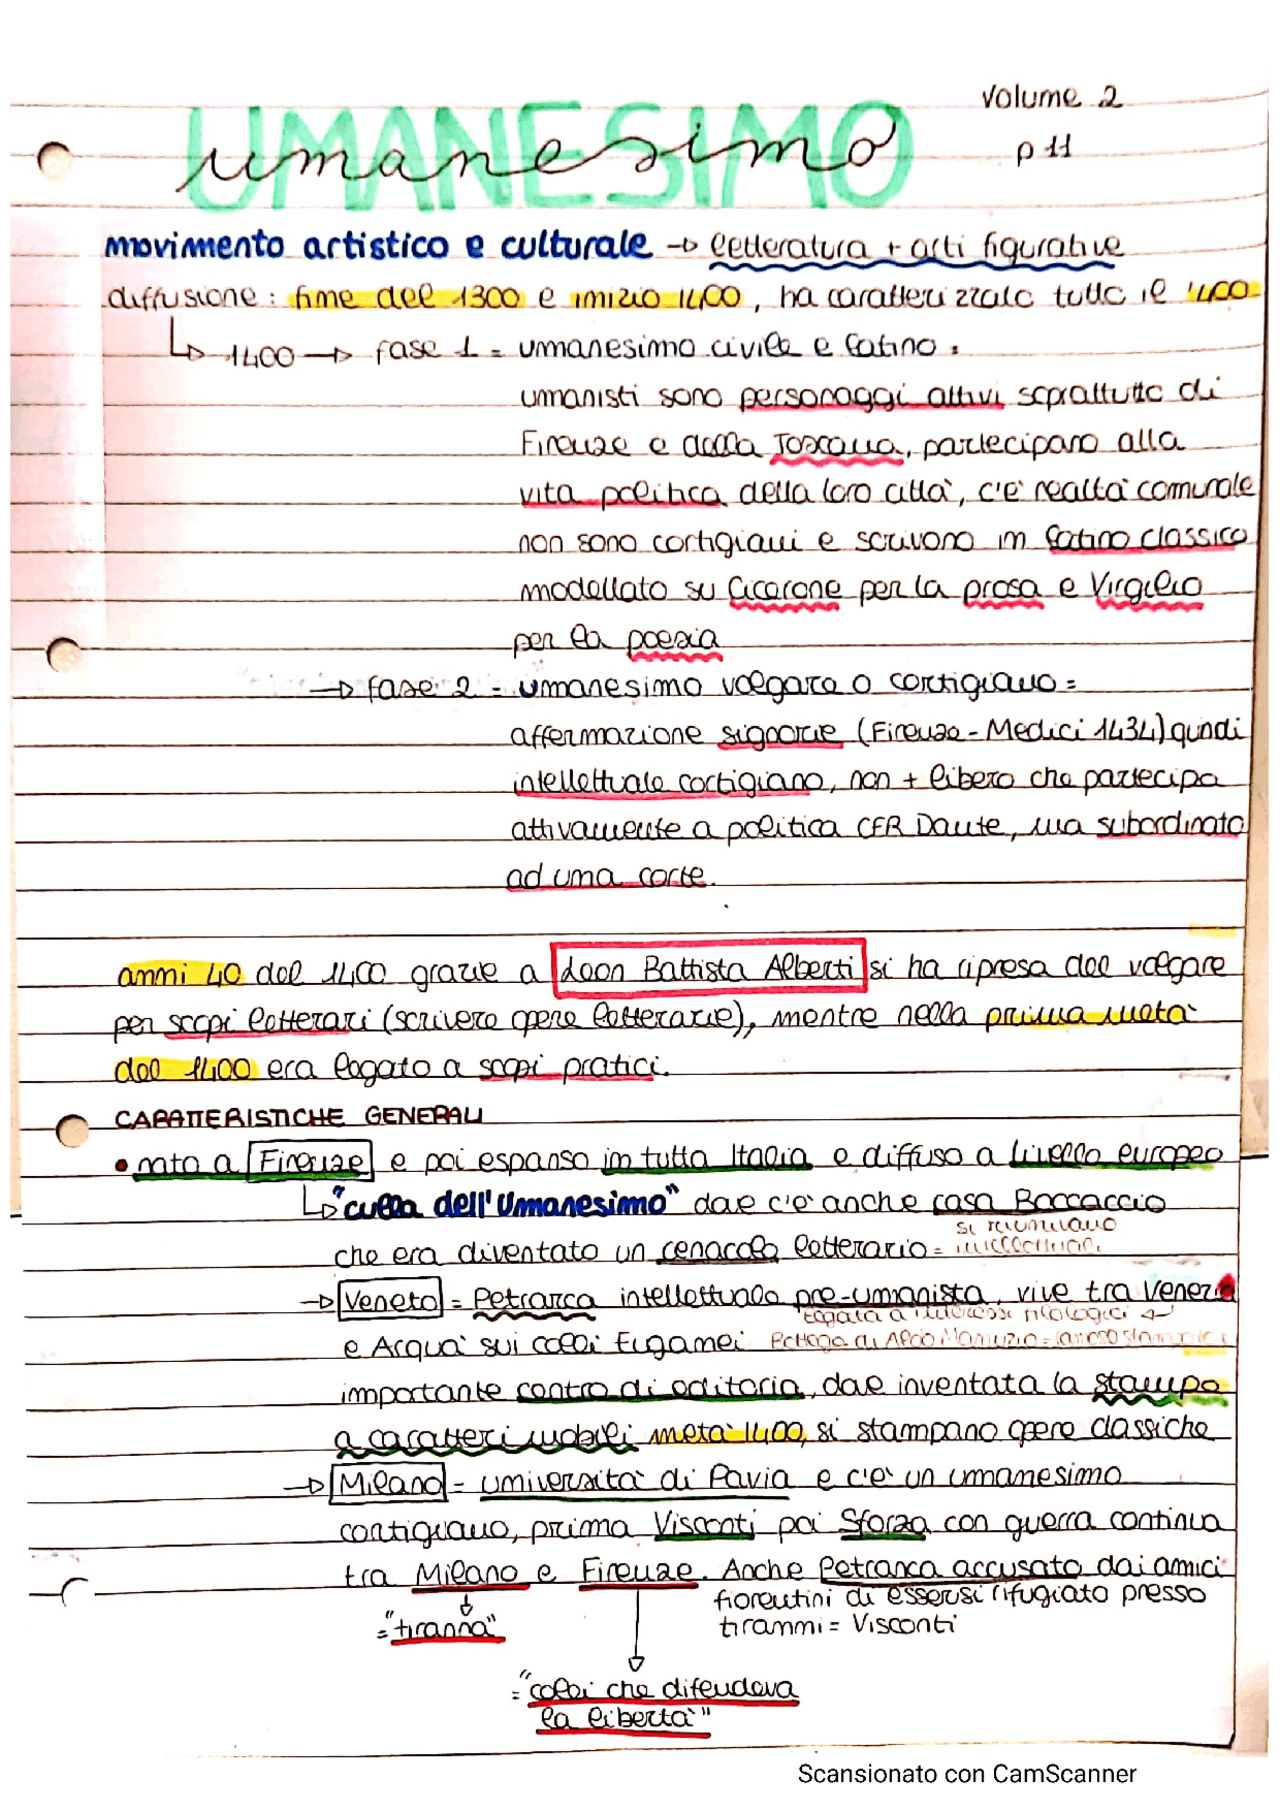 volume 2
UMANESIMO
umanesimo
p 11
movimento artistico e culturale → letteratura + arti figurative
diffusione: fine del 1300 e inizio 1400, ha caratterizzato tutto il 1400
↳ 1400 → fase 1 = umanesimo civile e latino:
umanisti sono personaggi attivi soprattutto di
Firenze e della Toscana, partecipano alla
vita politica della loro città, c'è realtà comunale
non sono cortigiani e scrivono in latino classico
modellato su Cicerone per la prosa e Virgilio
per la poesia
→ fase 2 = umanesimo volgare o cortigiano =
affermazione signorie (Firenze - Medici 1434) quindi
intellettuale cortigiano, non + libero che partecipa
attivamente a politica CFR Dante, ma subordinato
ad una corte.
anni 40 del 1400 grazie a Leon Battista Alberti si ha ripresa del volgare
per scopi letterari (scrivere opere letterarie), mentre nella prima metà
del 1400 era legato a scopi pratici.
CARATTERISTICHE GENERALI
• nato a Firenze e poi espanso in tutta Italia e diffuso a livello europeo
↳ "culla dell'Umanesimo" dove c'è anche casa Boccaccio
si riunivano
che era diventato un cenacolo letterario = intellettuali
→ Veneto = Petrarca intellettuale pre-umanista, vive tra Venezia
legata a interessi filologici ↵
e Acquà sui colli Eugamei Bottega di Aldo Manuzio =
importante centro di editoria, dove inventata la stampa
a caratteri mobili metà 1400, si stampano opere classiche
→ Milano = università di Pavia e c'è un umanesimo
cortigiano, prima Visconti poi Sforza con guerra continua
tra Milano e Firenze. Anche Petrarca accusato dai amici
fiorentini di essersi rifugiato presso
="tiranna" tiranni = Visconti
="colei che difendeva
la libertà"
Scansionato con CamScanner